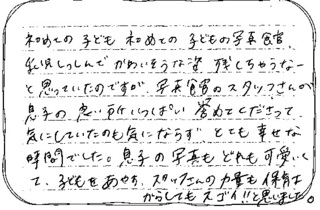 初めての子ども 初めての子どもの写真館、
乳児しっしんで かわいそうな姿 残しちゃうなー
と思っていたのですが、写真館のスタッフさんが
息子の良い所いっぱい 誉めてくださって
気にしていたのも気にならず とても幸せな
時間でした。息子の写真も どれも可愛い
て、子どもをあやす、スタッフさんの力量も保育士
からしてもスゴイ!!と思いました。